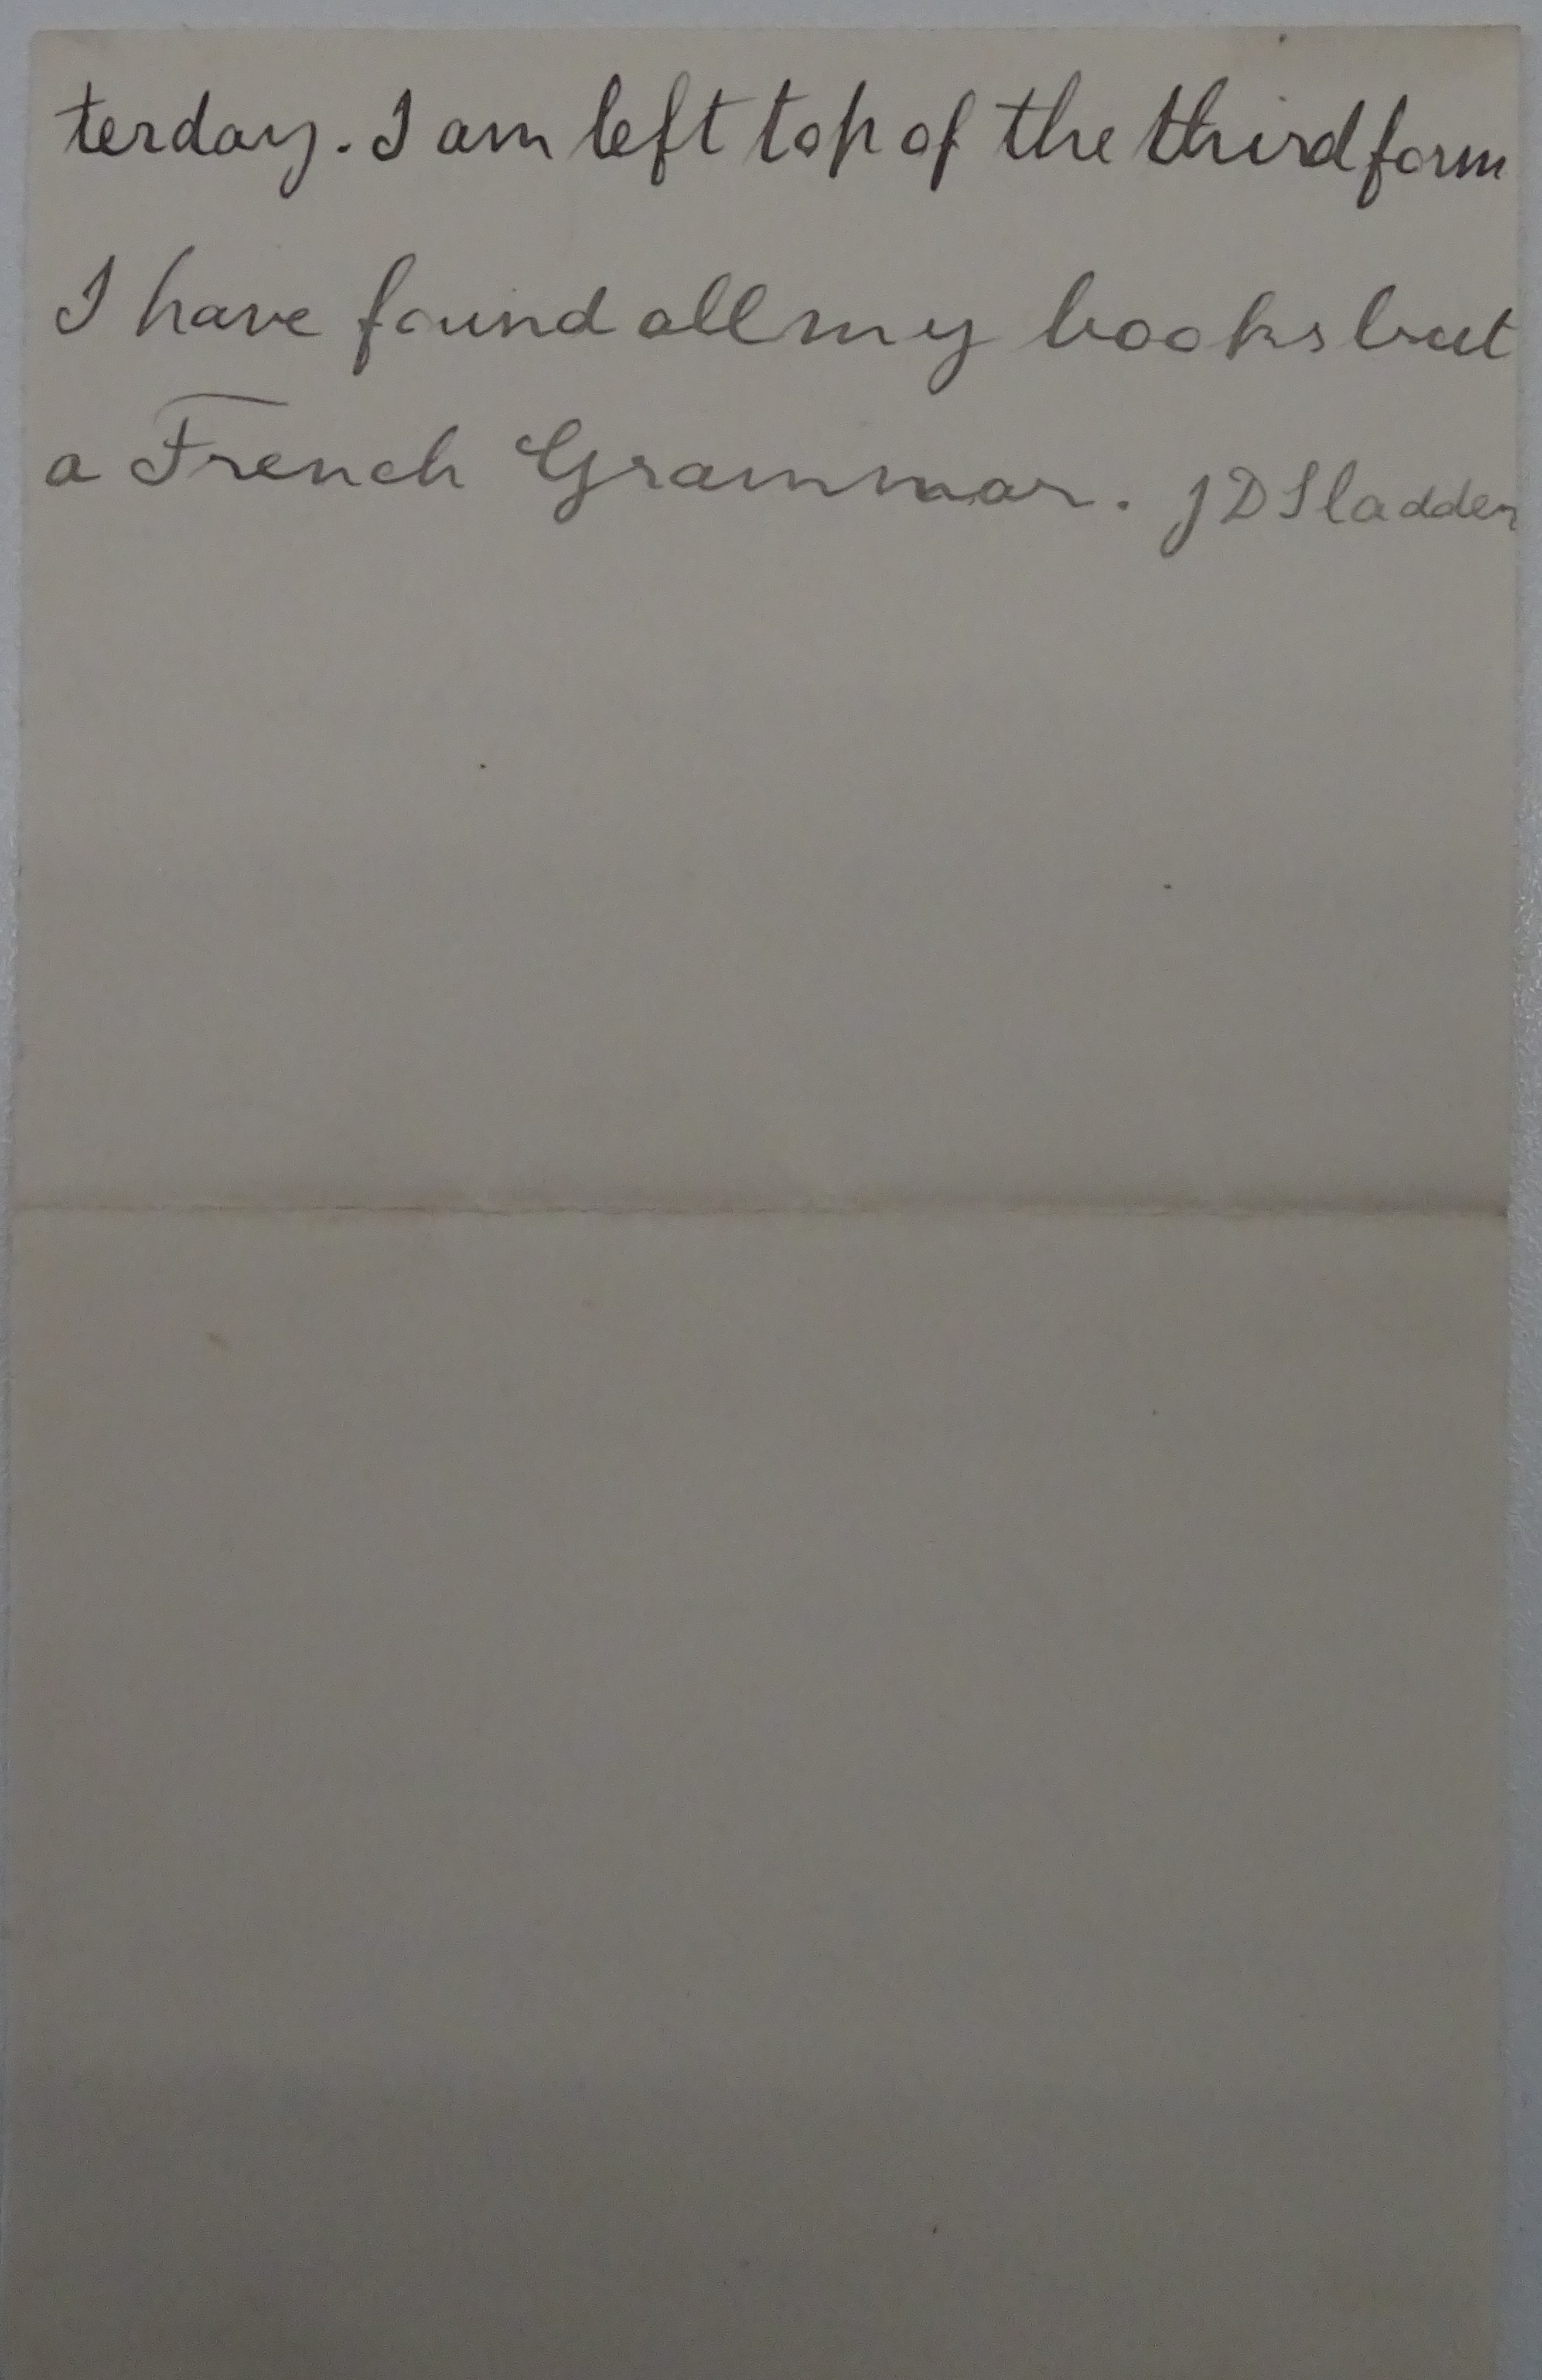 terday. I am left top of the third form
I have found all my books but
a French Grammar. J D Sladden